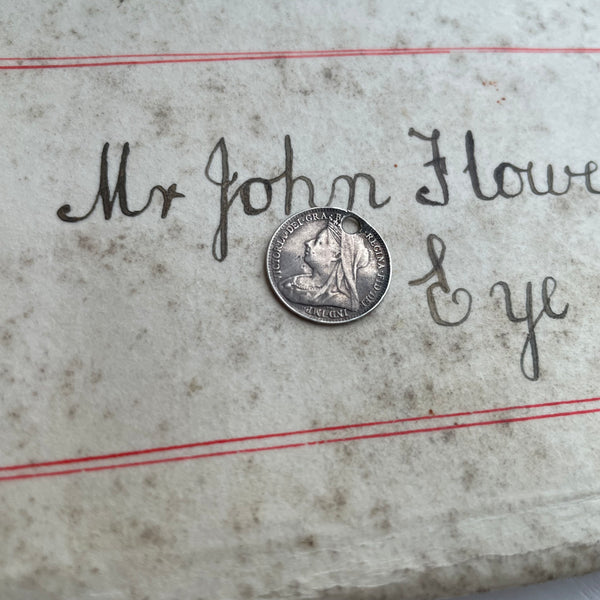 Mr John Flowe
Eye
VICTORIA·DEI·GRA·B REGINA·FID·DEF· IND·IMP·